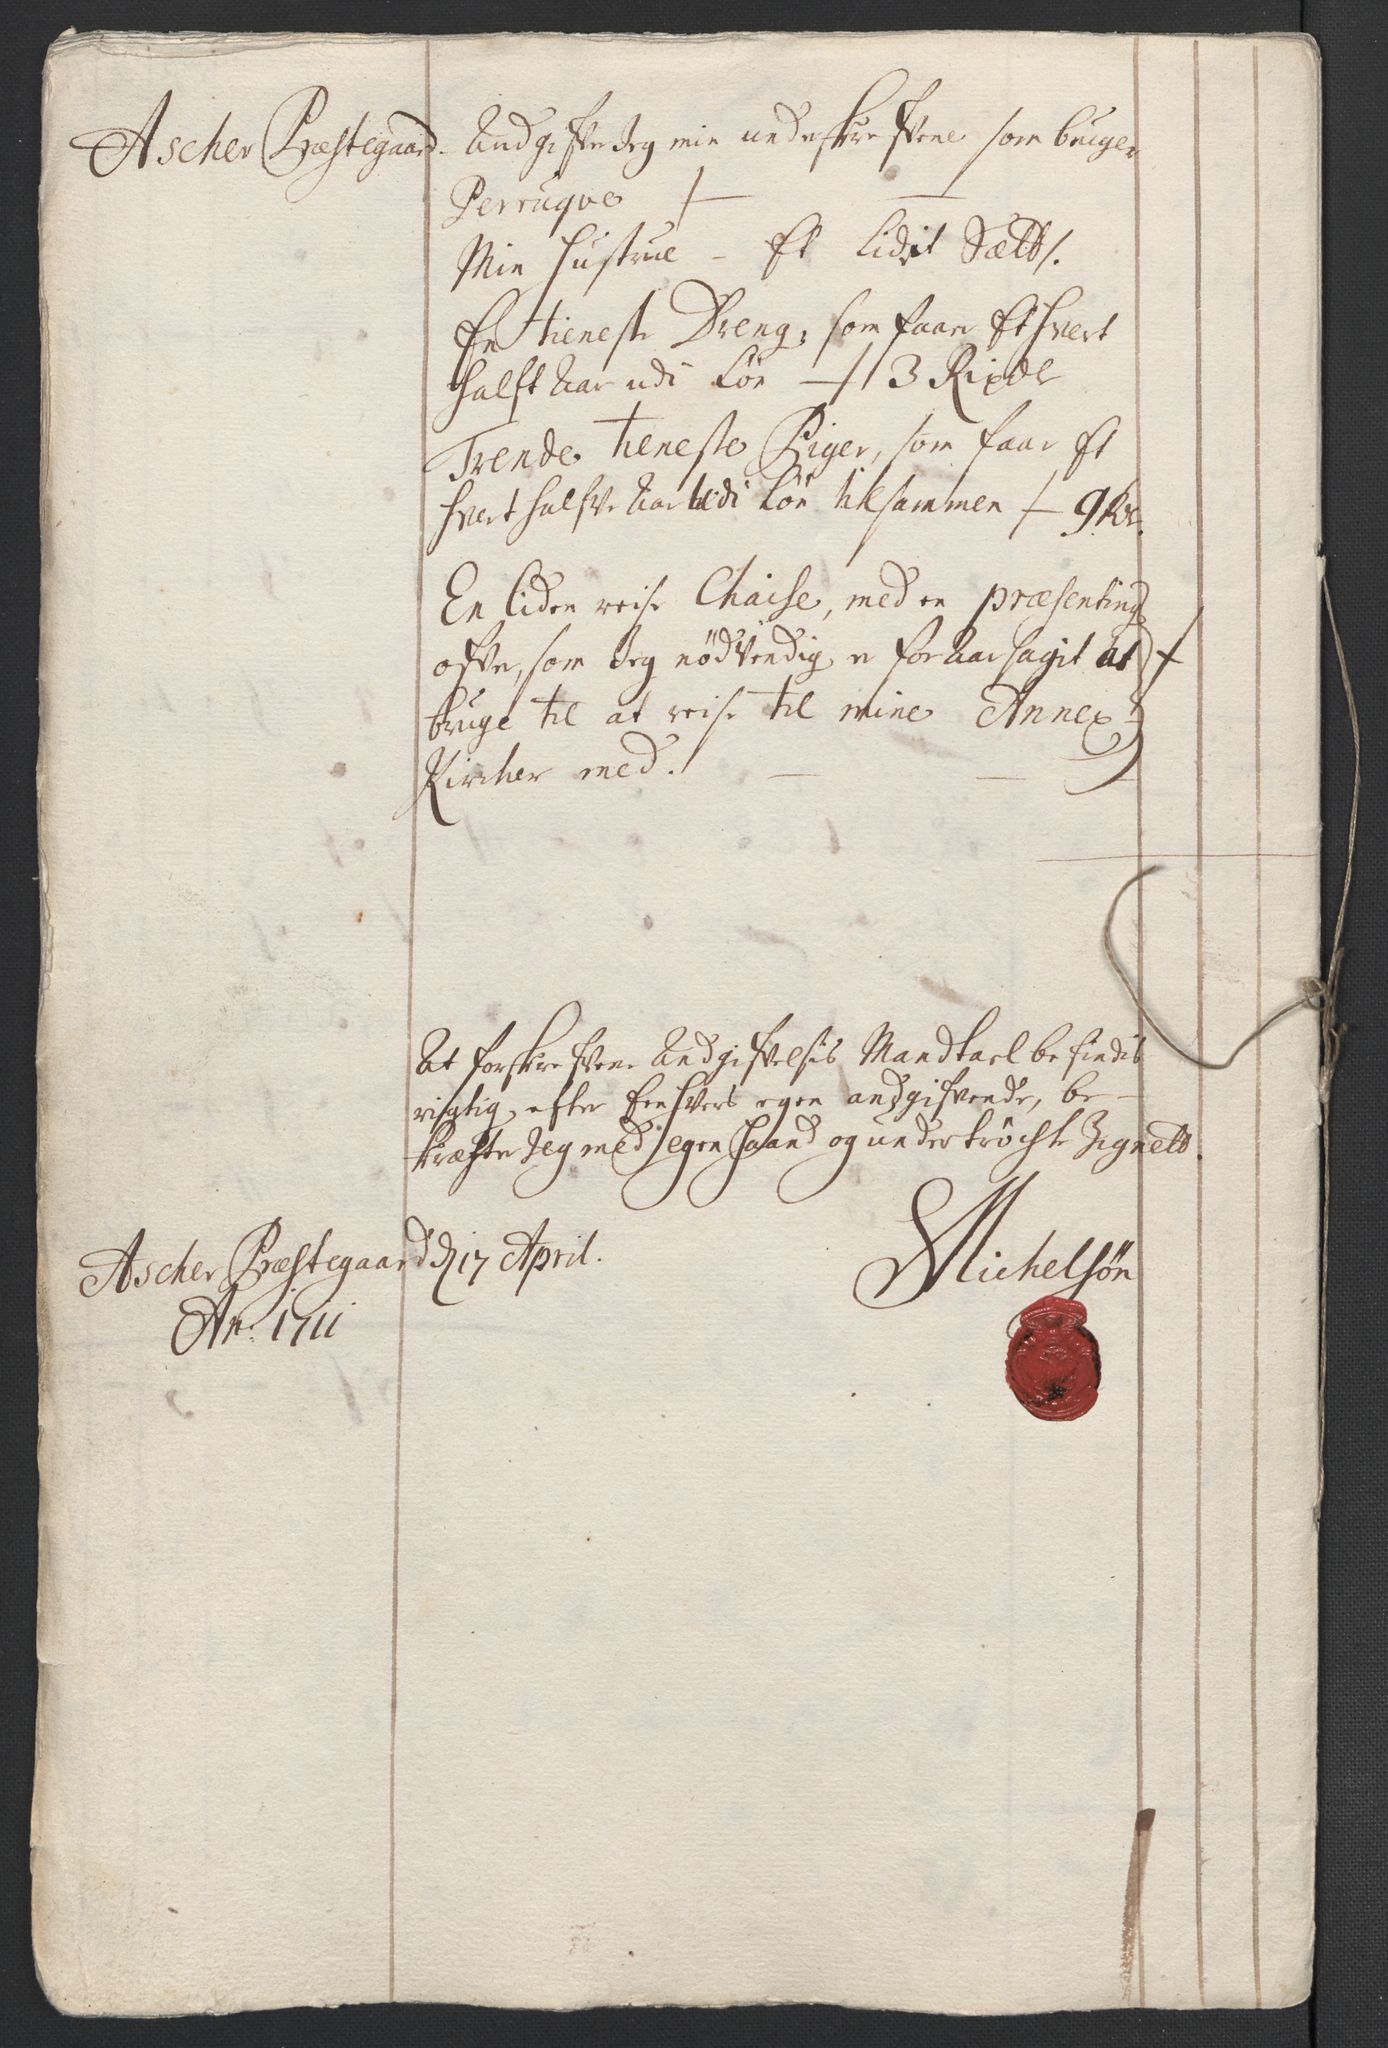 Ascher Præstegaard. Andgifver Jeg mig underskrefvene som bruger
Perruqve
Min Hustrue - Et lidet Sætt/.
En tieneste Dreng, som faar Et hvert
halft Aar udi Løn 3 Rixdl
Trende tieneste Piger, som faar Et
hvert halfve Aar udi Løn tilsammen 9 Rd.
En liden reise Chaise, med en præsenting
ofver, som Jeg nødvendig er foraarsagit at
bruge til at reise til mine Annex
Kircher med.
At forskrefvene Andgifvelsis Mandtael befindis
rigtig, efter Een hvers egen andgifvende, be-
kræfter Jeg med egen Haand og undertrøchte Zignett.
Ascher Præstegaard d 17 April.
An: 1711
Michelsøn